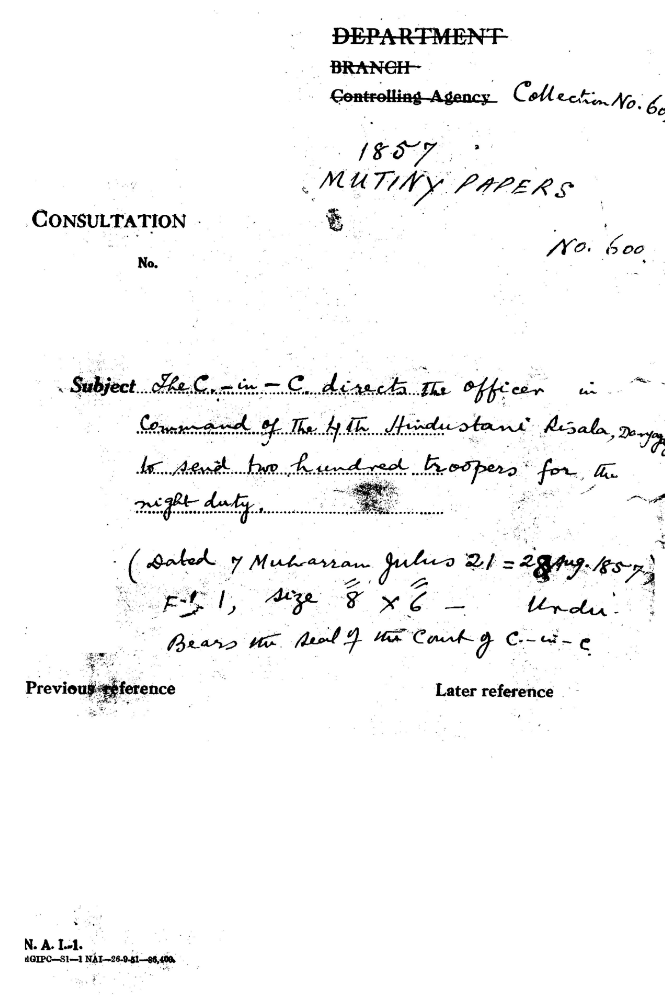 DEPARTMENT
BRANCH
Controlling Agency Collection No. 60
1857
MUTINY PAPERS
CONSULTATION
No. 600
No.
Subject The C.-in-C. directs the officer in
Command of the 4th Hindustani Risala,
to send two hundred troopers for the
night duty.
(Dated 7 Muharram Julus 21 = 28 Aug. 1857
F-1, size 8" x 6" - Urdu.
Bears the seal of the Court of C.-in-C
Previous reference Later reference
N. A. I.-1.
GIPC—S1—1 NAI—26-9-51—